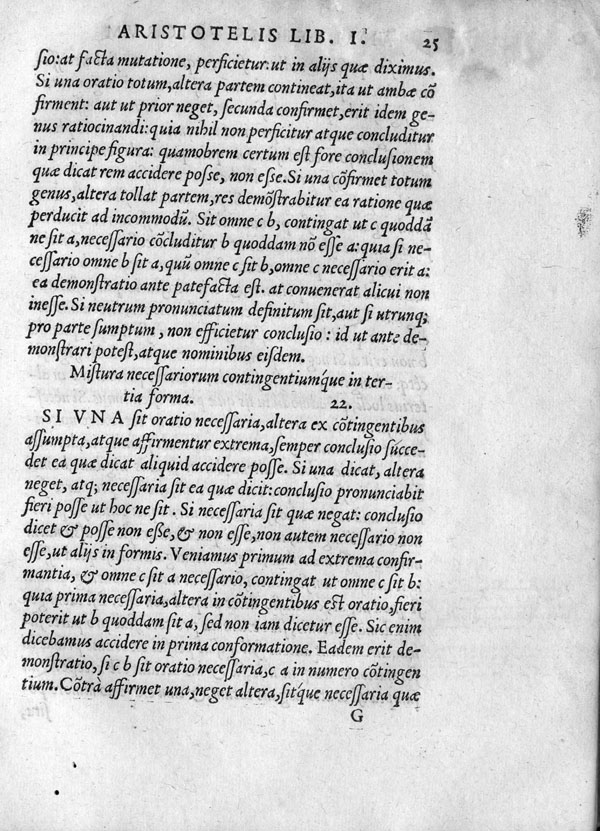 ARISTOTELIS LIB. I. 25
sio: at facta mutatione, perficietur: ut in alijs quæ diximus.
Si una oratio totum, altera partem contineat, ita ut ambæ cõ
firment: aut ut prior neget, secunda confirmet, erit idem ge-
nus ratiocinandi: quia nihil non perficitur atque concluditur
in principe figura: quamobrem certum est fore conclusionem
quæ dicat rem accidere posse, non esse. Si una cõfirmet totum
genus, altera tollat partem, res demõstrabitur ea ratione quæ
perducit ad incommodũ. Sit omne c b, contingat ut c quoddã
ne sit a, necessario cõcluditur b quoddam nõ esse a: quia si ne-
cessario omne b sit a, quũ omne c sit b, omne c necessario erit a:
ea demonstratio ante patefacta est. at conuenerat alicui non
inesse. Si neutrum pronunciatum definitum sit, aut si utrunq;
pro parte sumptum, non efficietur conclusio: id ut ante de-
monstrari potest, atque nominibus eisdem.
Mistura necessariorum contingentiumq́ue in ter-
tia forma. 22.
SI VNA sit oratio necessaria, altera ex cõtingentibus
assumpta, atque affirmentur extrema, semper conclusio succe-
det ea quæ dicat aliquid accidere posse. Si una dicat, altera
neget, atq; necessaria sit ea quæ dicit: conclusio pronunciabit
fieri posse ut hoc ne sit. Si necessaria sit quæ negat: conclusio
dicet & posse non esse, & non esse, non autem necessario non
esse, ut alijs in formis. Veniamus primum ad extrema confir-
mantia, & omne c sit a necessario, contingat ut omne c sit b:
quia prima necessaria, altera in cõtingentibus est oratio, fieri
poterit ut b quoddam sit a, sed non iam dicetur esse. Sic enim
dicebamus accidere in prima conformatione. Eadem erit de-
monstratio, si c b sit oratio necessaria, c a in numero cõtingen
tium. Cõtrà affirmet una, neget altera, sitq́ue necessaria quæ
G